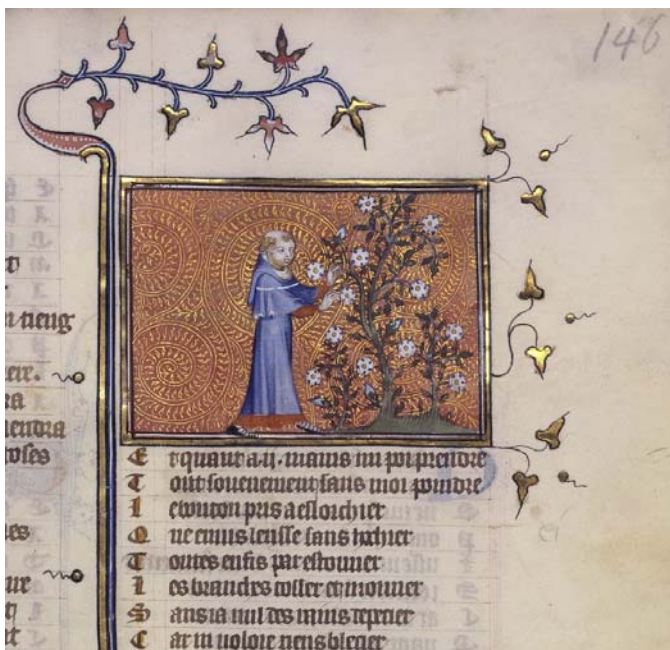 146
n tieng
ere.
ra
iendra
oses
es
ue
nt
Et quant a .ij. mains mi poi prendre
Tout souevement sans moi poindre
Le bouton pris a eslochier
Que envis leusse sans hochier
Toutes en fis par estouvoir
Les branches croller et mouvoir
Sans ia nul des rains depecier
Car ni voloie riens blecier